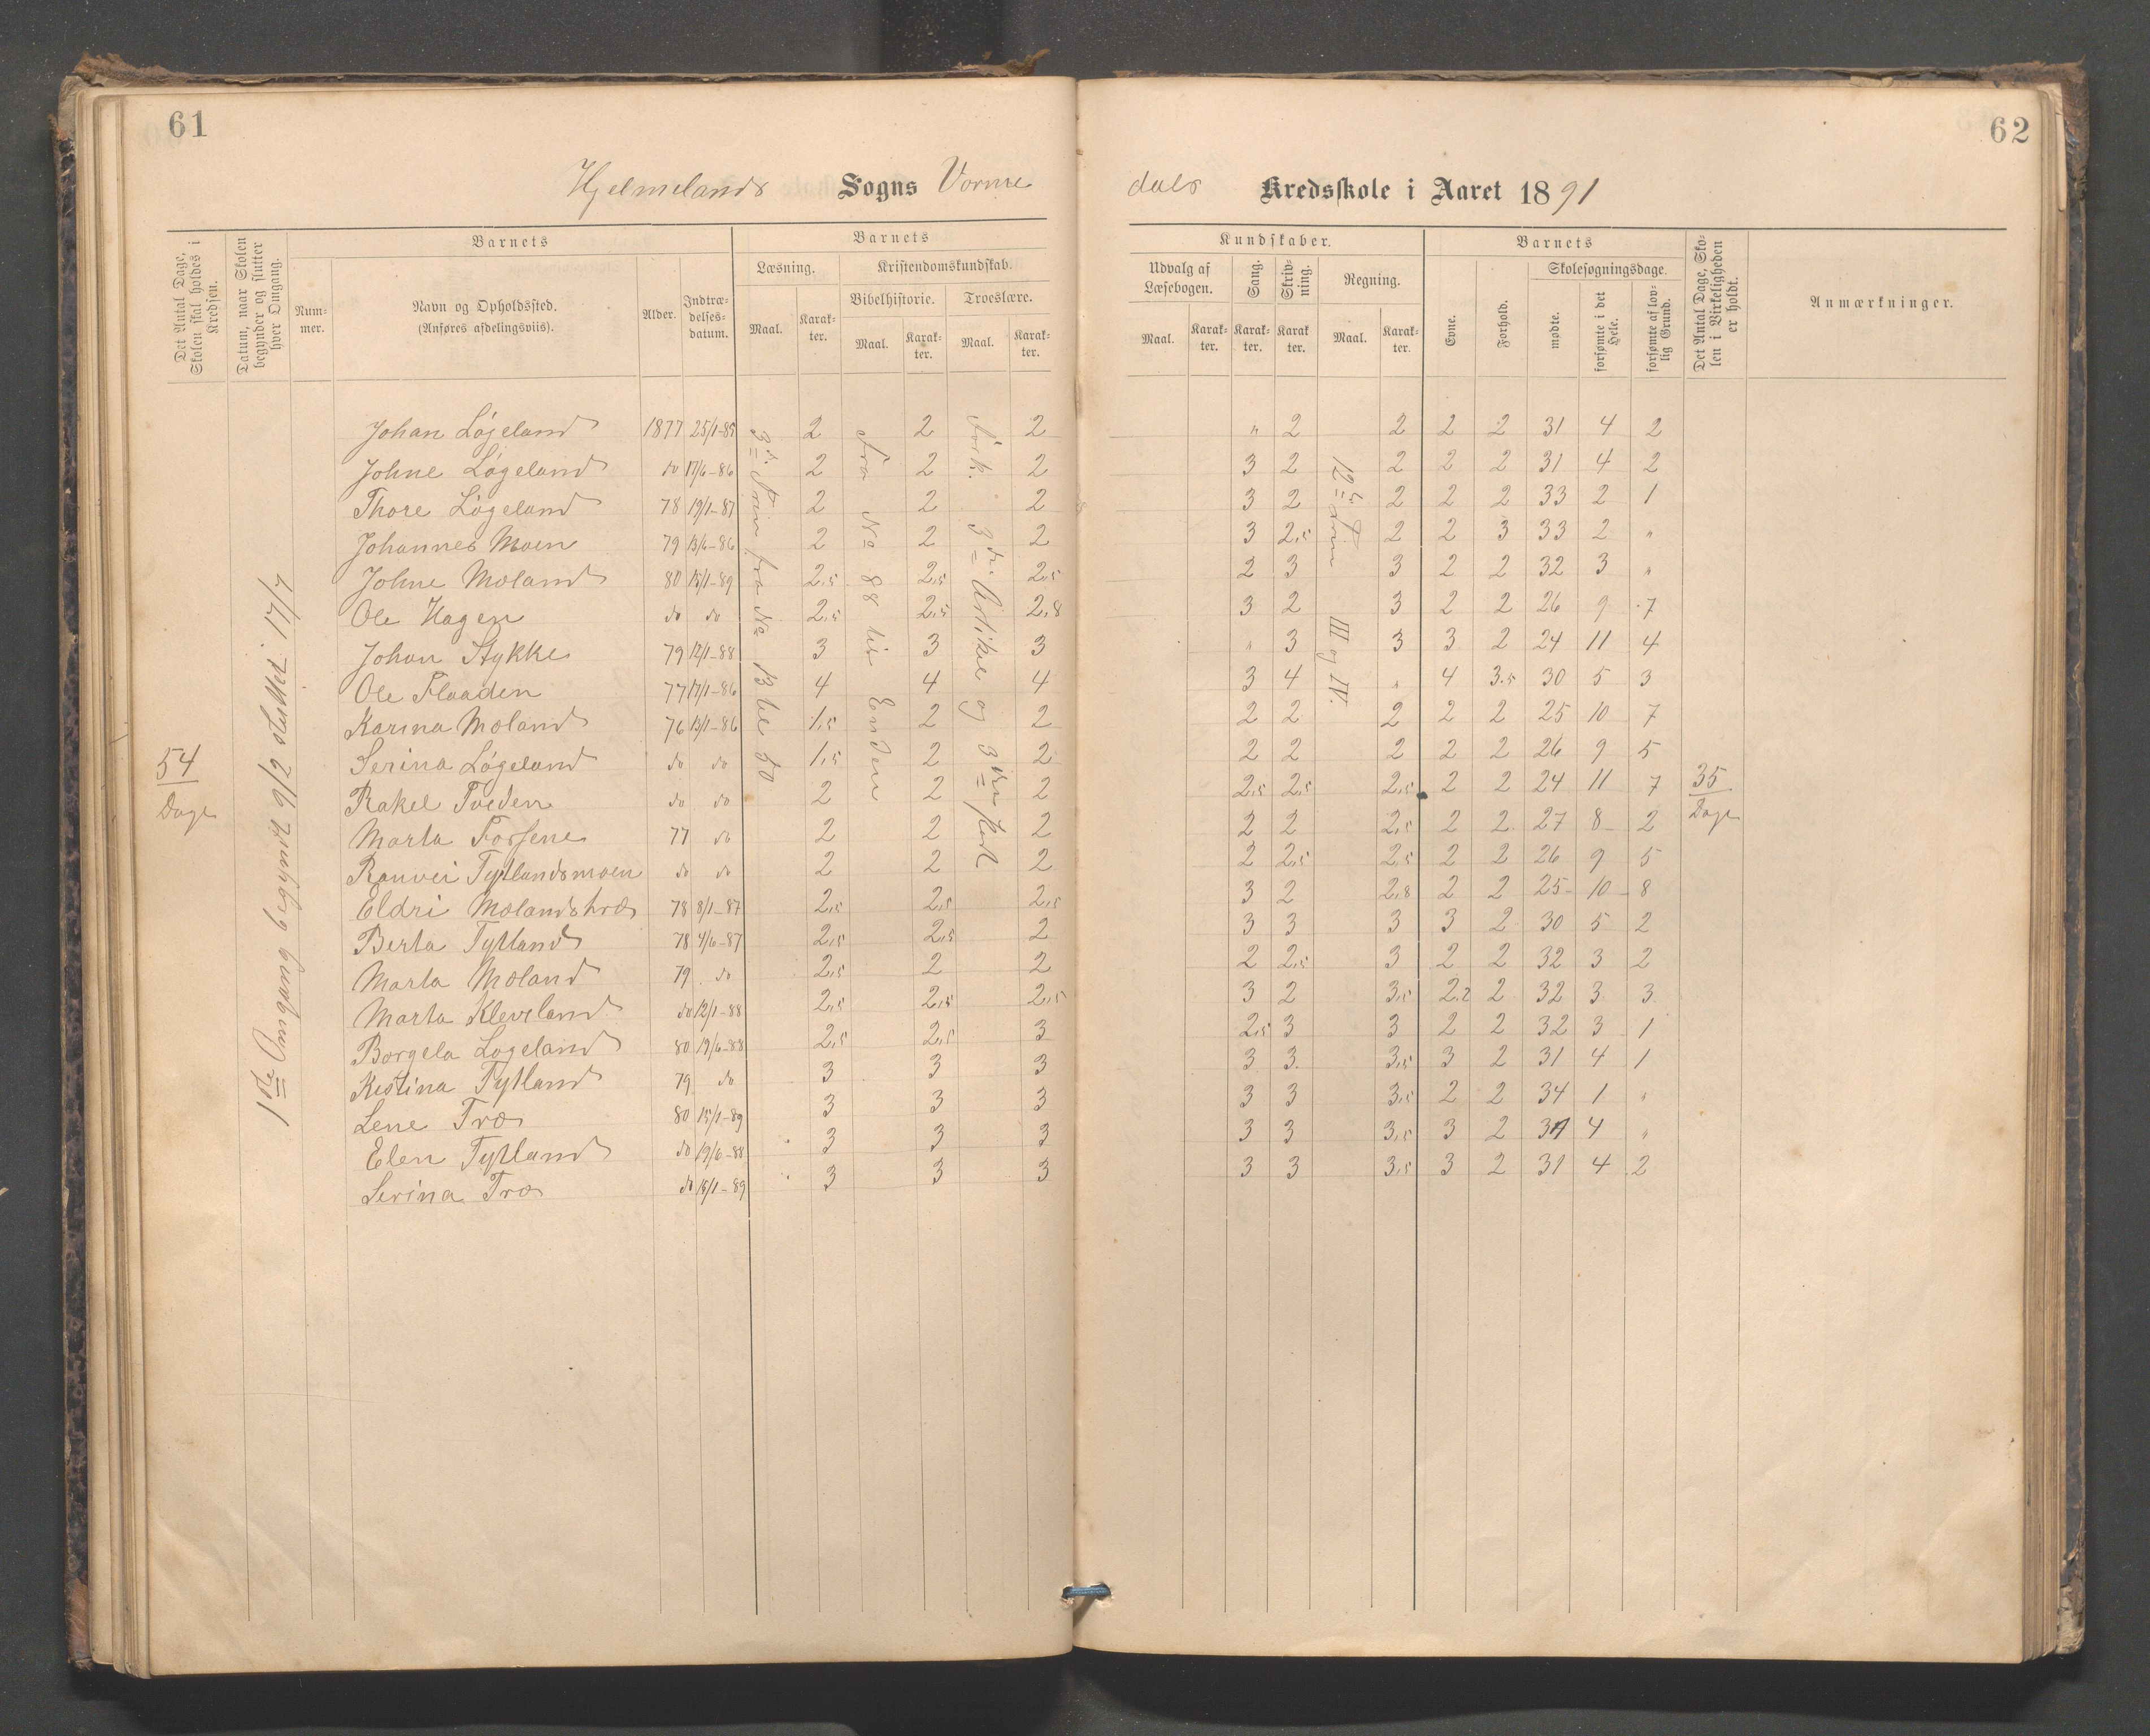 61
62
Hjelmelands Sogns Vorme
dals Kredsskole i Aaret 1891
Det Antal Dage, Skolen skal holdes i Kredsen.
Datum, naar Skolen begynder og slutter hver Omgang.
Num-
mer.
Barnets
Navn og Opholdssted.
(Anføres afdelingsviis).
Alder.
Indtræ-
delses-
datum.
Barnets
Læsning.
Kristendomskundskab.
Bibelhistorie.
Troeslære.
Maal.
Karak-
ter.
Maal.
Karak-
ter.
Maal.
Karak-
ter.
Kundskaber.
Udvalg af
Læsebogen.
Sang.
Skriv-
ning.
Regning.
Maal.
Karak-
ter.
Karak-
ter.
Karak
ter.
Maal.
Karak-
ter.
Barnets
Evne.
Forhold.
Skolesøgningsdage.
mødte.
forsømte i det Hele.
forsømte af lov-
lig Grund.
Det Antal Dage, Sko-
len i Virkeligheden
er holdt.
Anmærkninger.
54
Dage
1ste Omgang begyndt 9/2 sluttet 17/7
3de Trin fra No 13 til 50
Fra No 88 til Enden
Fork. 3die Artikel og 3die Part
12te Trin III og IV.
35
Dage
Johan Løgeland 1877 25/1-85 2 2 2 " 2 2 2 2 31 4 2
Johne Løgeland do 17/6-86 2 2 2 3 2 2 2 2 31 4 2
Thore Løgeland 78 19/1-87 2 2 2 3 2 2 2 2 33 2 1
Johannes Moen 79 13/6-86 2 2 2 3 2,5 2 2 3 33 2 "
Johne Mæland 80 15/1-89 2,5 2,5 2,5 2 3 3 2 2 32 3 "
Ole Hagen do do 2,5 2,5 2,8 3 2 3 2 2 26 9 7
Johan Stykke 79 12/1-88 3 3 3 " 3 3 3 2 24 11 4
Ole Flaaden 77 17/1-86 4 4 4 3 4 " 4 3.5 30 5 3
Karina Mæland 76 13/1-86 1,5 2 2 2 2 2 2 2 25 10 7
Serina Løgeland do do 1,5 2 2 2 2 2 2 2 26 9 5
Rakel Tveden do do 2 2 2 2,5 2,5 2,5 2 2 24 11 7
Marta Fossene 77 do 2 2 2 2 2 2,5 2 2 27 8 2
Ranvei Tytlandsmoen do do 2 2 2 2 2,5 2,5 2 2 26 9 5
Eldri Mælandstræ 78 8/1-87 2,5 2,5 2,5 3 2 2,8 2 2 25 10 8
Berta Tytland 78 4/6-87 2,5 2,5 2 3 3 3 3 2 30 5 2
Marta Mæland 79 do 2,5 2 2 2 2,5 3 2 2 32 3 2
Marta Kleveland do 12/1-88 2,5 2,5 2,5 3 2 3,5 2.2 2 32 3 3
Borgela Løgeland 80 19/6-88 2,5 2,5 3 2,5 3 3 2 2 32 3 1
Kistina Tytland 79 do 3 3 3 3 3 3,5 3 2 31 4 1
Lene Træ 80 15/1-89 3 3 3 3 3 3,5 2 2 34 1 "
Elen Tytland do 19/6-88 3 3 3 3 3 3,5 3 2 31 4 "
Serina Træ do 18/1-89 3 3 3 3 3 3,5 3 2 31 4 2